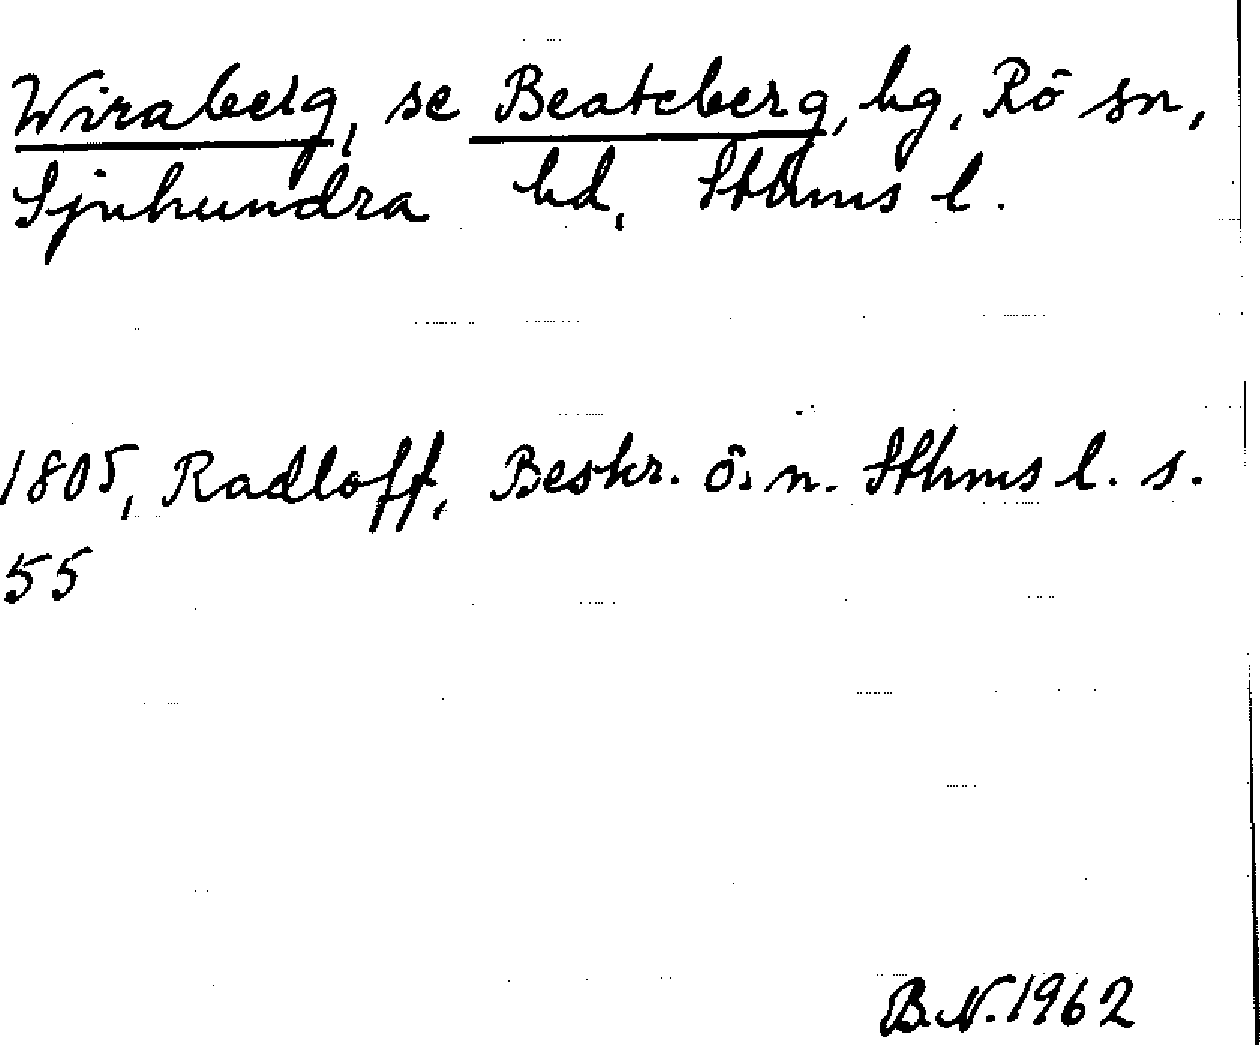 Wiraberg, se Beateberg, hg, Rö sn,
Sjuhundra hd, Sthms l.
1805, Radloff, Beskr. ö. n. Sthms l. s.
55
B.N. 1962